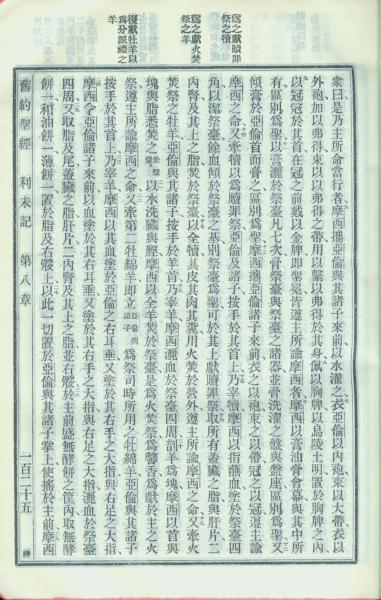 爲之獻贖罪
祭之犢
爲之獻火焚
祭之羊
復獻牡羊以
爲分派禮之
羊
衆曰是乃主所命當行者摩西攜亞倫與其諸子來前以水濯之衣亞倫以內袍束以大帶衣以
外袍加以弗得束以以弗得之帶用以繫以弗得於其身佩以胸牌以烏陵土明置於胸牌之內
以冠冠於其首在冠之前戴以金牌即聖冕皆遵主所諭摩西者摩西以膏油膏會幕與其中所
有區別爲聖以膏灑於祭臺凡七次膏祭臺與祭臺之諸器並膏洗濯之盤與盤座區別爲聖又
傾膏於亞倫首而膏之區別爲聖摩西攜亞倫諸子來前衣之以袍束之以帶冠之以冠遵主諭
摩西之命又牽犢以爲贖罪祭亞倫及諸子按手於其首上乃宰犢摩西以指蘸血塗於祭臺四
角以潔祭臺餘血傾於祭臺之基別祭臺爲聖可於其上獻贖罪祭取所有蓋臟之脂與肝片二
內腎及其上之脂焚於祭臺以全犢其皮其肉其糞用火焚於營外遵主所諭摩西之命又牽火
焚祭之牡羊亞倫與其諸子按手於羊首乃宰羊摩西灑血於祭臺四周剖羊爲塊摩西以首與
塊與脂悉焚之以水洗臟與脛摩西以全羊焚於祭臺是爲火焚祭爲馨香爲獻於主之火
祭遵主所諭摩西之命又牽第二牡綿羊即立亞倫與諸子爲祭司時所用之牡綿羊亞倫與其諸子
按手於其首上乃宰羊摩西以其血塗於亞倫之右耳垂又塗於其右手之大指與右足之大指
摩西令亞倫諸子來前以血塗於其右耳垂又塗於其右手之大指與右足之大指灑血於祭臺
四周又取脂及尾蓋臟之脂肝片二內腎及其上之脂並右骽於主前盛無酵餅之筐內取無酵
餅一和油餅一薄餅一置於脂及右骽上以此一切置於亞倫與其諸子掌上使搖於主前摩西
舊約聖經 利未記 第八章 一百二十五